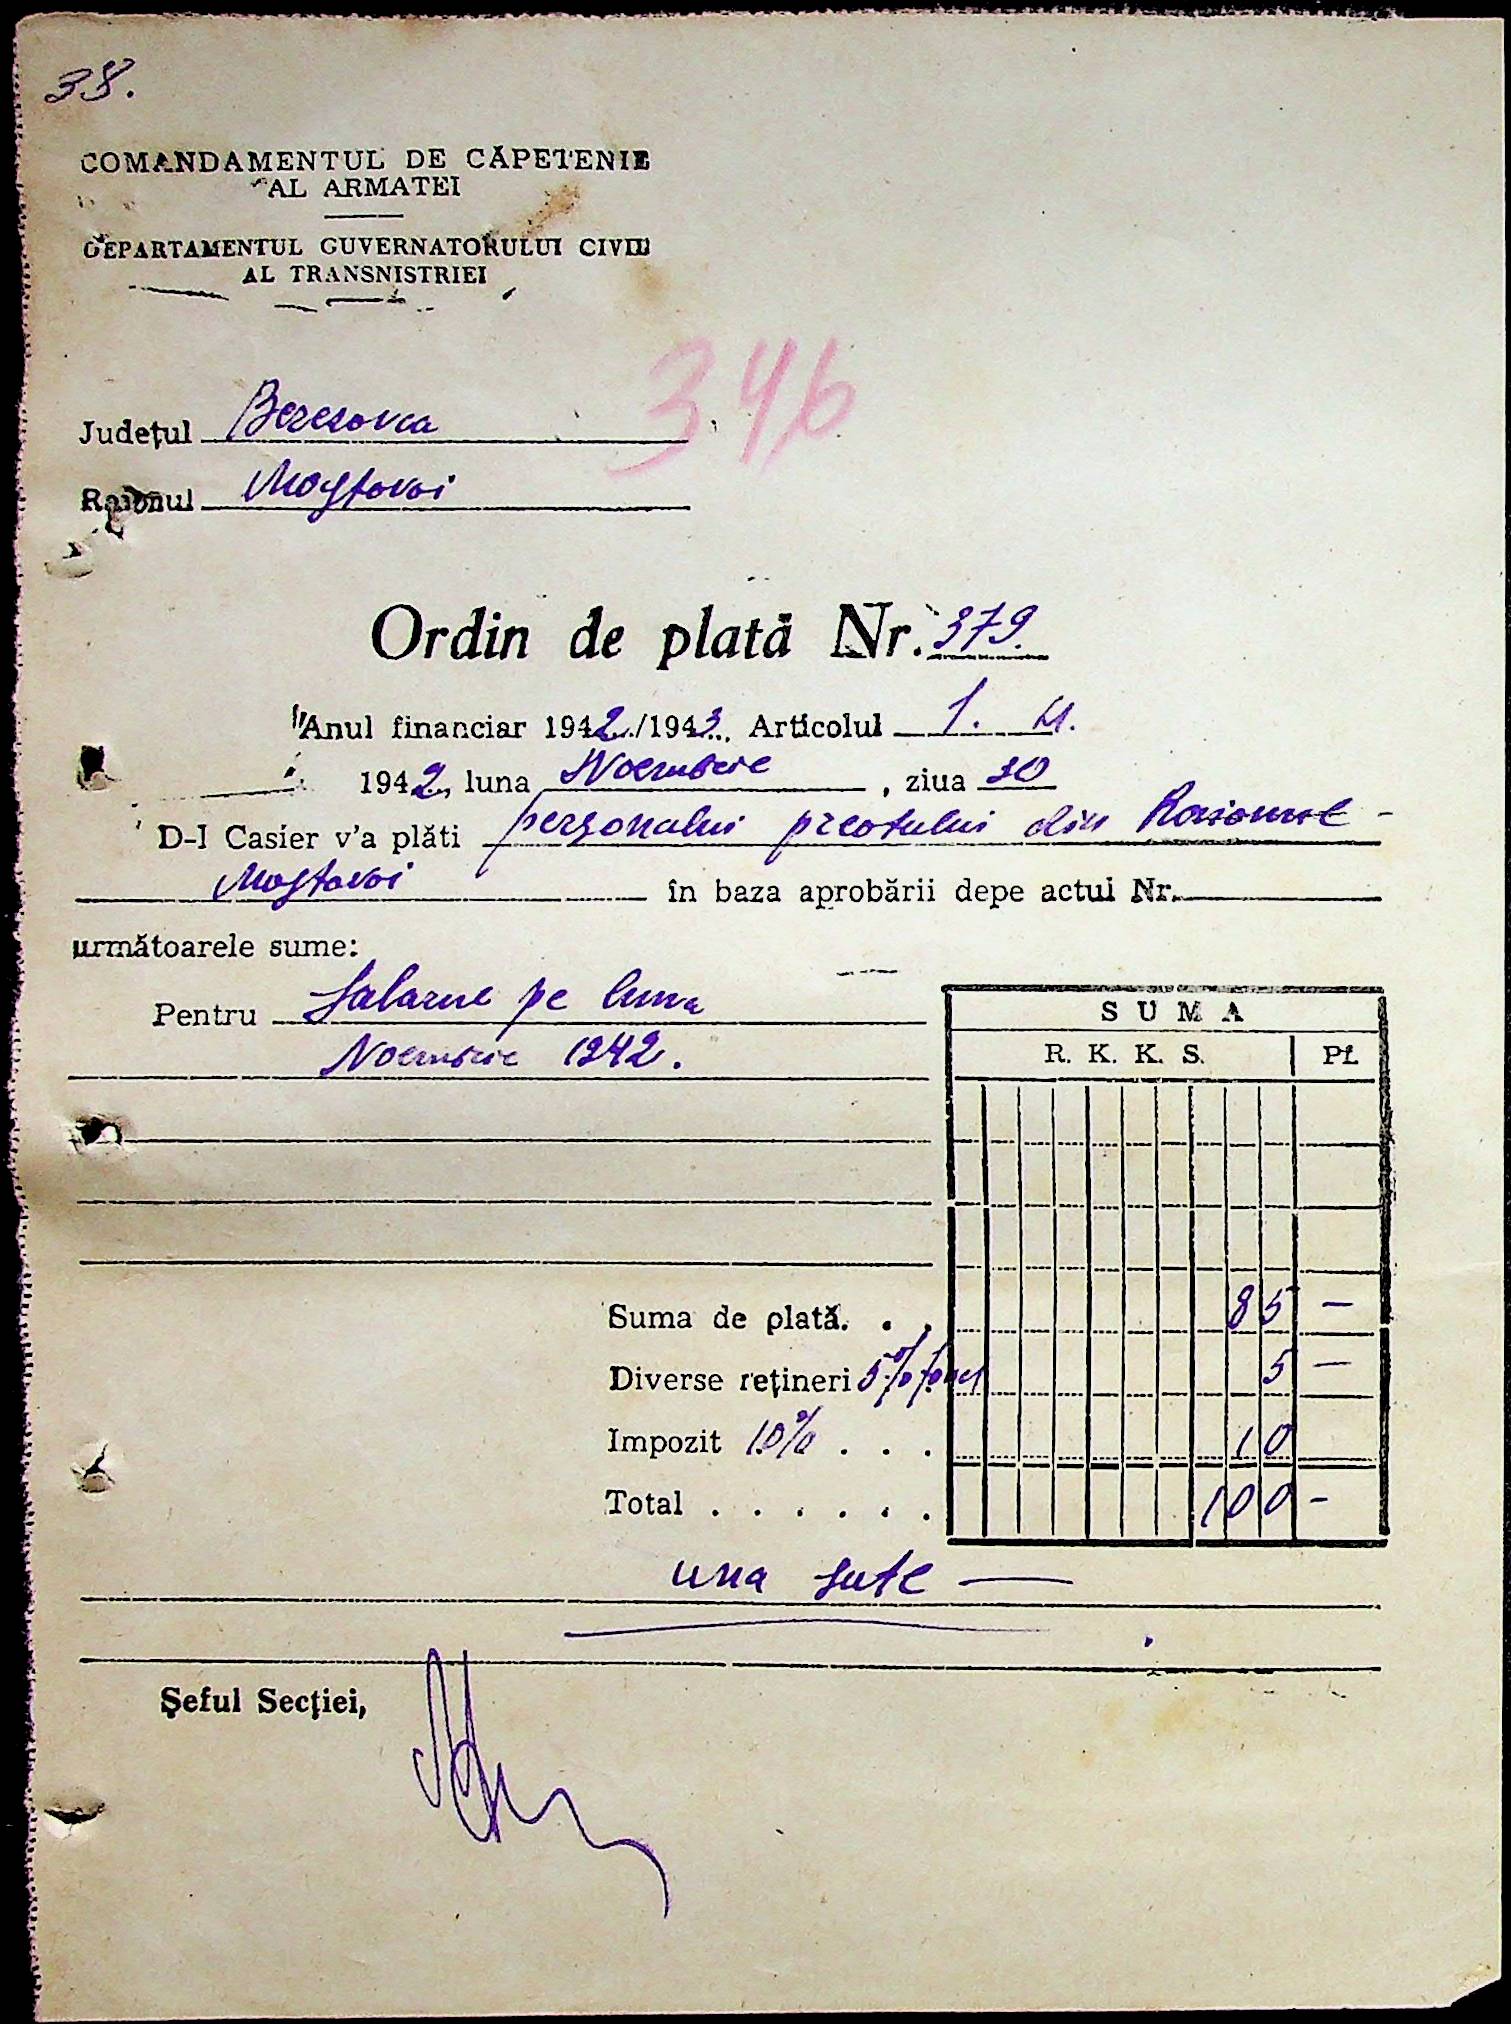 38.
COMANDAMENTUL DE CĂPETENIE
AL ARMATEI
DEPARTAMENTUL GUVERNATORULUI CIVIL
AL TRANSNISTRIEI
346
Județul Berezovca
Raionul Mostovoi
Ordin de plată Nr. 379.
Anul financiar 1942/1943. Articolul 1.
1942, luna Noembrie, ziua 30
D-l Casier v'a plăti personalui preotului din Raionul -
Mostovoi în baza aprobării depe actul Nr.
următoarele sume:
Pentru Salarul pe luna
Noembrie 1942.
SUMA
R. K. K. S. Pf.
Suma de plată. . . 85 —
Diverse rețineri 5% 5 —
Impozit 10% . . . 10
Total . . . . . . 100 -
una sute —
Șeful Secției,